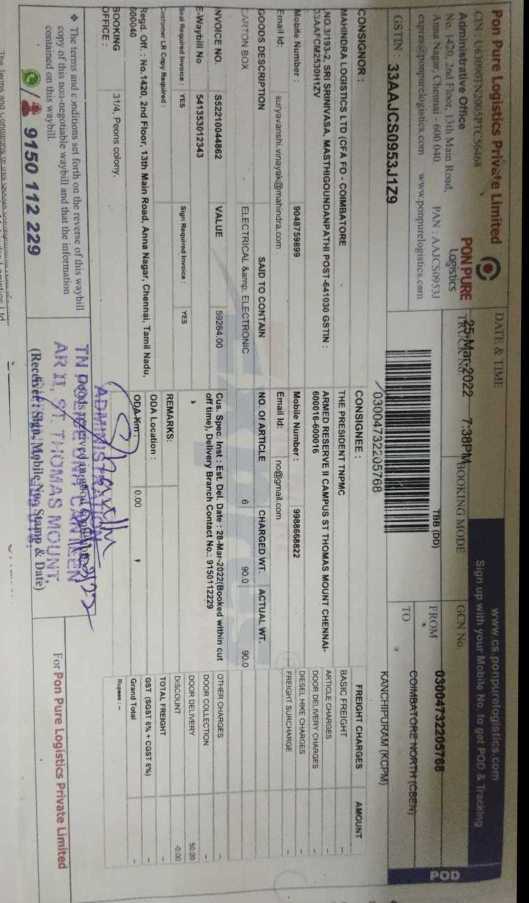 Pon Pure Logistics Private Limited
CIN : U63090TN2005PTC56068
Administrative Office
No. 1420, 2nd Floor, 13th Main Road,
Anna Nagar, Chennai - 600 040
www.ponpurelogistics.com
PAN : AAJCS0953J
GSTIN 33AAJCS0953J1Z9
PON PURE
Logistics
DATE & TIME
25-Mar-2022 7:38PM
BOOKING MODE
TBB (DD)
www.cs.ponpurelogistics.com
Sign up with your Mobile No. to get POD & Tracking
GCN No.
03004732205768
FROM
COIMBATORE NORTH (CBEN)
TO
KANCHIPURAM (KCPM)
POD
03004732205768
CONSIGNOR :
MAHINDRA LOGISTICS LTD (CFA FO - COIMBATORE
NO.3/193-2, SRI SRINIVASA, MASTHIGOUNDANPATHI POST-641030 GSTIN :
33AAFCM2530H1ZV
Mobile Number : 9048759899
Email Id: suryavanshi.vinayak@mahindra.com
CONSIGNEE :
THE PRESIDENT TNPMC
ARMED RESERVE II CAMPUS ST THOMAS MOUNT CHENNAI-
600016-600016
Mobile Number : 9988668822
Email Id: no@gmail.com
FREIGHT CHARGES AMOUNT
BASIC FREIGHT -
ARTICLE CHARGES -
DOOR DELIVERY CHARGES -
DIESEL HIKE CHARGES -
FREIGHT SURCHARGE -
GOODS DESCRIPTION SAID TO CONTAIN NO. OF ARTICLE CHARGED WT. ACTUAL WT.
CARTON BOX ELECTRICAL &amp; ELECTRONIC 6 90.0 90.0
INVOICE NO. S52210044862 VALUE 59264.00
E-Waybill No 541353012343
Seal Required Invoice : YES Sign Required Invoice : YES
Customer LR Copy Required :
Regd. Off. : No.1420, 2nd Floor, 13th Main Road, Anna Nagar, Chennai, Tamil Nadu,
600040
BOOKING OFFICE : 31/4, Peons colony,
Cus. Spec. Inst : Est. Del. Date : 28-Mar-2022(Booked within cut
off time), Delivery Branch Contact No.: 9150112229
REMARKS:
ODA Location :
ODA Km : 0.00
OTHER CHARGES -
DOOR COLLECTION -
DOOR DELIVERY 50.00
DISCOUNT -0.00
TOTAL FREIGHT
GST (SGST 6% + CGST 6%) -
Grand Total -
Rupees : --
❖ The terms and conditions set forth on the reverse of this waybill
copy of this non-negotiable waybill and that the information
contained on this waybill.
9150 112 229
ADMINISTRATOR
TN POLICE CANTEEN
AR II, ST. THOMAS MOUNT,
(Receiver : Sign, Mobile No, Stamp & Date)
For Pon Pure Logistics Private Limited